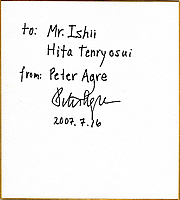 to: Mr. Ishii
Hita Tenryosui
from: Peter Agre
Peter Agre
2007.7.16